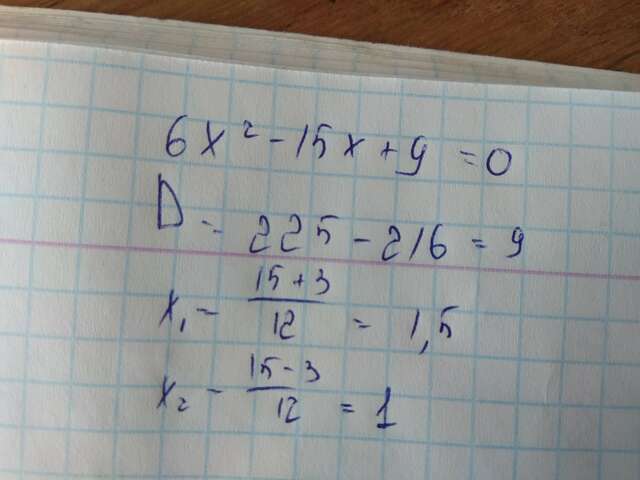 6x² - 15x + 9 = 0
D = 225 - 216 = 9
x₁ = (15 + 3)/12 = 1,5
x₂ = (15 - 3)/12 = 1